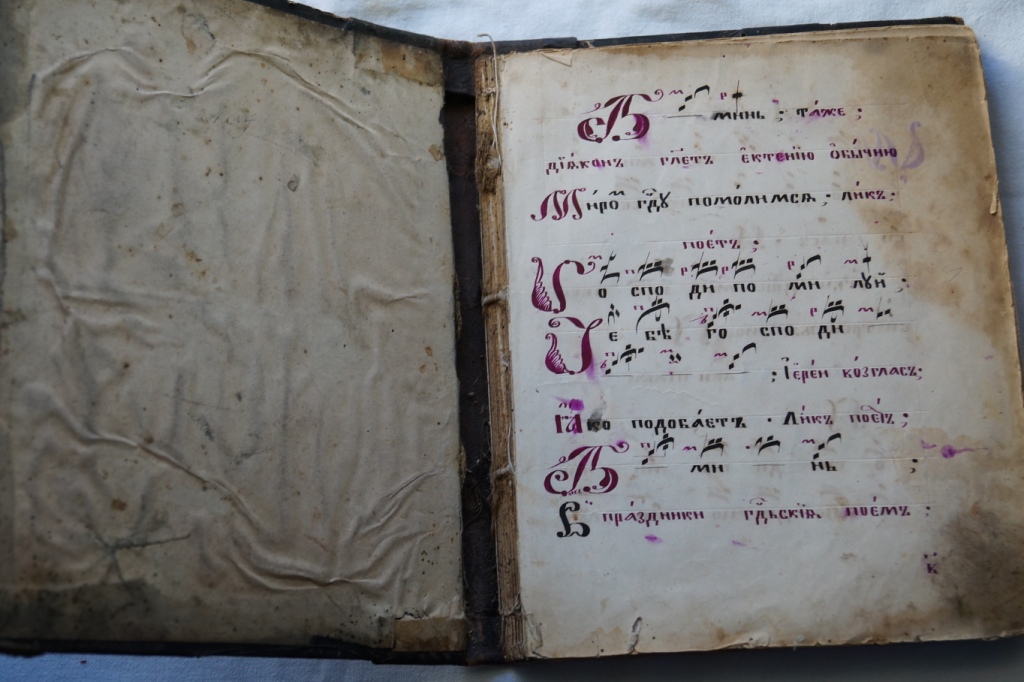 Аминь ; та́же ;
дїѧ́конъ гл҃етъ єктенїю обы́чнꙋю
Ми́ромъ гдꙋ помо́лимсѧ ; ликъ ;
пое́тъ ;
Го спо ди по ми лꙋй ;
Те бѣ го спо ди
; Їере́й во́згласъ ;
Ꙗко подоба́етъ · Ликъ пое́тъ ;
А ми нь ;
В пра́здники гдⷭ҇ьскїѧ пое́мъ ·
к